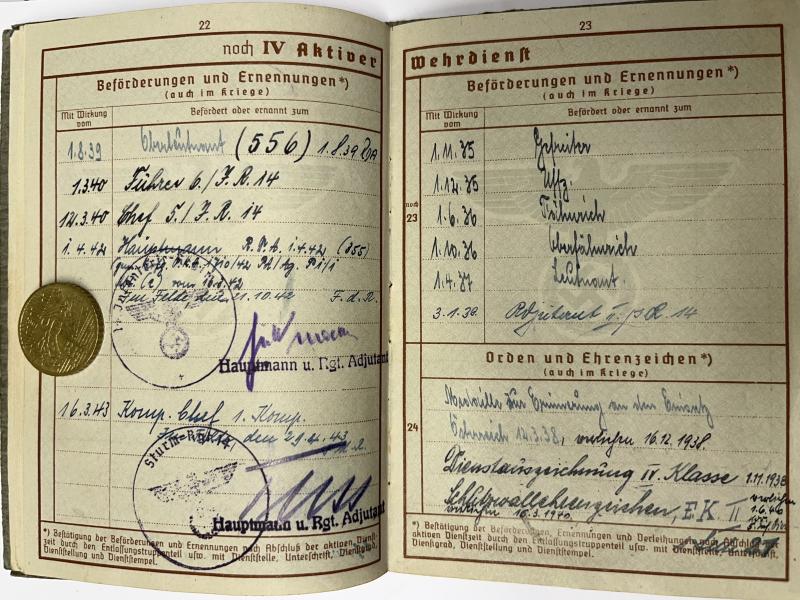 22
noch IV Aktiver
Beförderungen und Ernennungen*)
(auch im Kriege)
Mit Wirkung vom
Befördert oder ernannt zum
1.8.39 Oberleutnant (556) 1.8.39
1.3.40 Führer 6./J.R.14
12.3.40 Chef 5./J.R.14
1.4.42 Hauptmann R.D.A. 1.4.42 (355)
vom
Im Felde den 21.10.42 F.d.R.
Hauptmann u. Rgt. Adjutant
16.3.43 Komp. Chef 1. Komp.
den 29.4.43
Sturm-Rgt. 14
Hauptmann u. Rgt. Adjutant
*) Bestätigung der Beförderungen und Ernennungen nach Abschluß der aktiven Dienst-
zeit durch den Entlassungstruppenteil usw. mit Dienststelle, Unterschrift, Dienstgrad,
Dienststellung und Dienststempel.
23
Wehrdienst
Beförderungen und Ernennungen*)
(auch im Kriege)
Mit Wirkung vom
Befördert oder ernannt zum
1.11.35 Gefreiter
1.12.35 Uffz.
noch
23
1.6.36 Fähnrich
1.10.36 Oberfähnrich
1.4.37 Leutnant
3.1.39 Adjutant II./J.R. 14
Orden und Ehrenzeichen*)
(auch im Kriege)
24
Medaille zur Erinnerung an den Einsatz
Österreich 12.3.38, verliehen 16.12.1938.
Dienstauszeichnung IV. Klasse 1.11.1938
verliehen
Schutzwallehrenzeichen, E.K. II 1.6.40
verliehen 16.3.1940
*) Bestätigung der Beförderungen, Ernennungen und Verleihungen nach Abschluß der
aktiven Dienstzeit durch den Entlassungstruppenteil usw. mit Dienststelle, Unterschrift,
Dienstgrad, Dienststellung und Dienststempel.